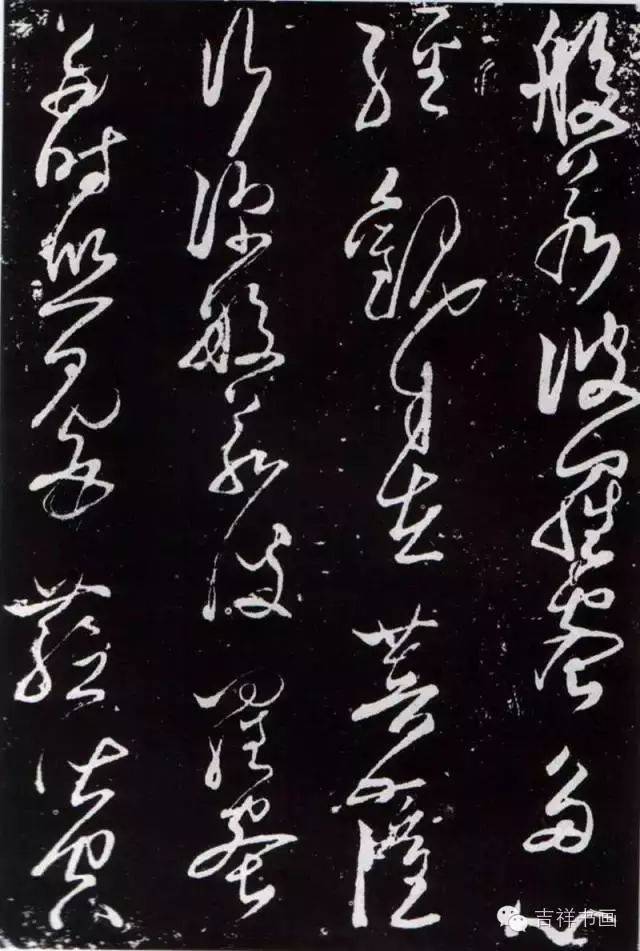 般若波羅蜜多心
經觀自在菩薩
行深般若波羅蜜
多時照見五蘊皆空
吉祥书画